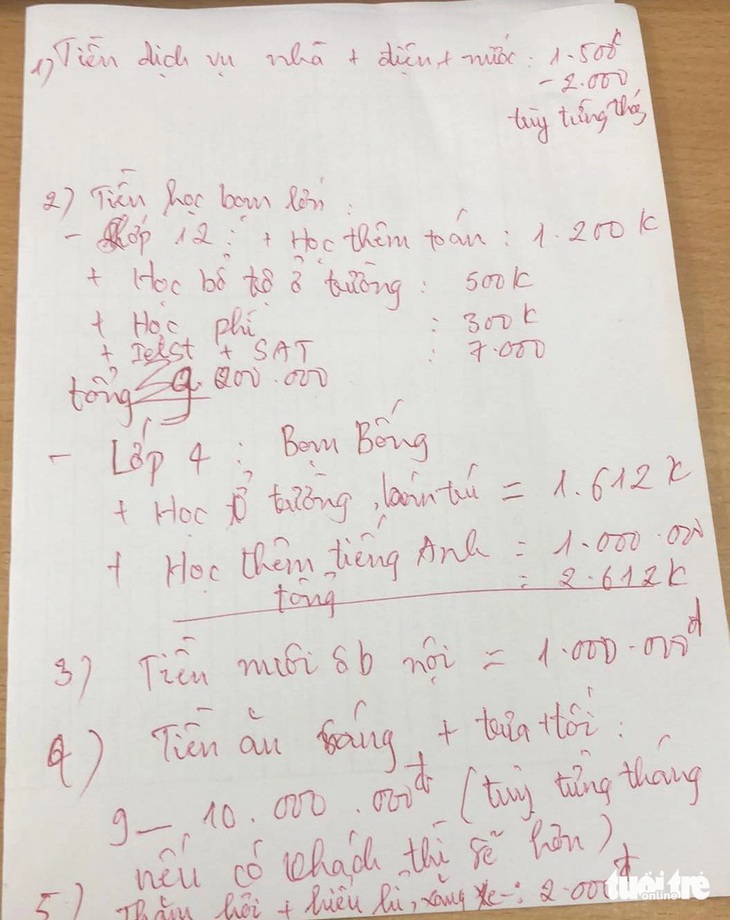 1) Tiền dịch vụ nhà + điện + nước : 1.500
- 2.000
tùy từng tháng
2) Tiền học bạn lớn :
- Lớp 12 : + Học thêm toán : 1.200 K
+ Học bổ trợ ở trường : 500 K
+ Học phí : 300 K
+ Ielst + SAT : 7.000
tổng 9.000.000
- Lớp 4 : Bạn Bống
+ Học ở trường, bán trú = 1.612 K
+ Học thêm tiếng Anh = 1.000.000
tổng : 2.612 K
3) Tiền nuôi ôb nội = 1.000.000đ
4) Tiền ăn sáng + trưa + tối :
9 – 10.000.000đ (tuỳ từng tháng
nếu có khách thì sẽ hơn)
5) Thăm hỏi + hiếu hỉ, xăng xe : 2.000đ
tuổi trẻ
online